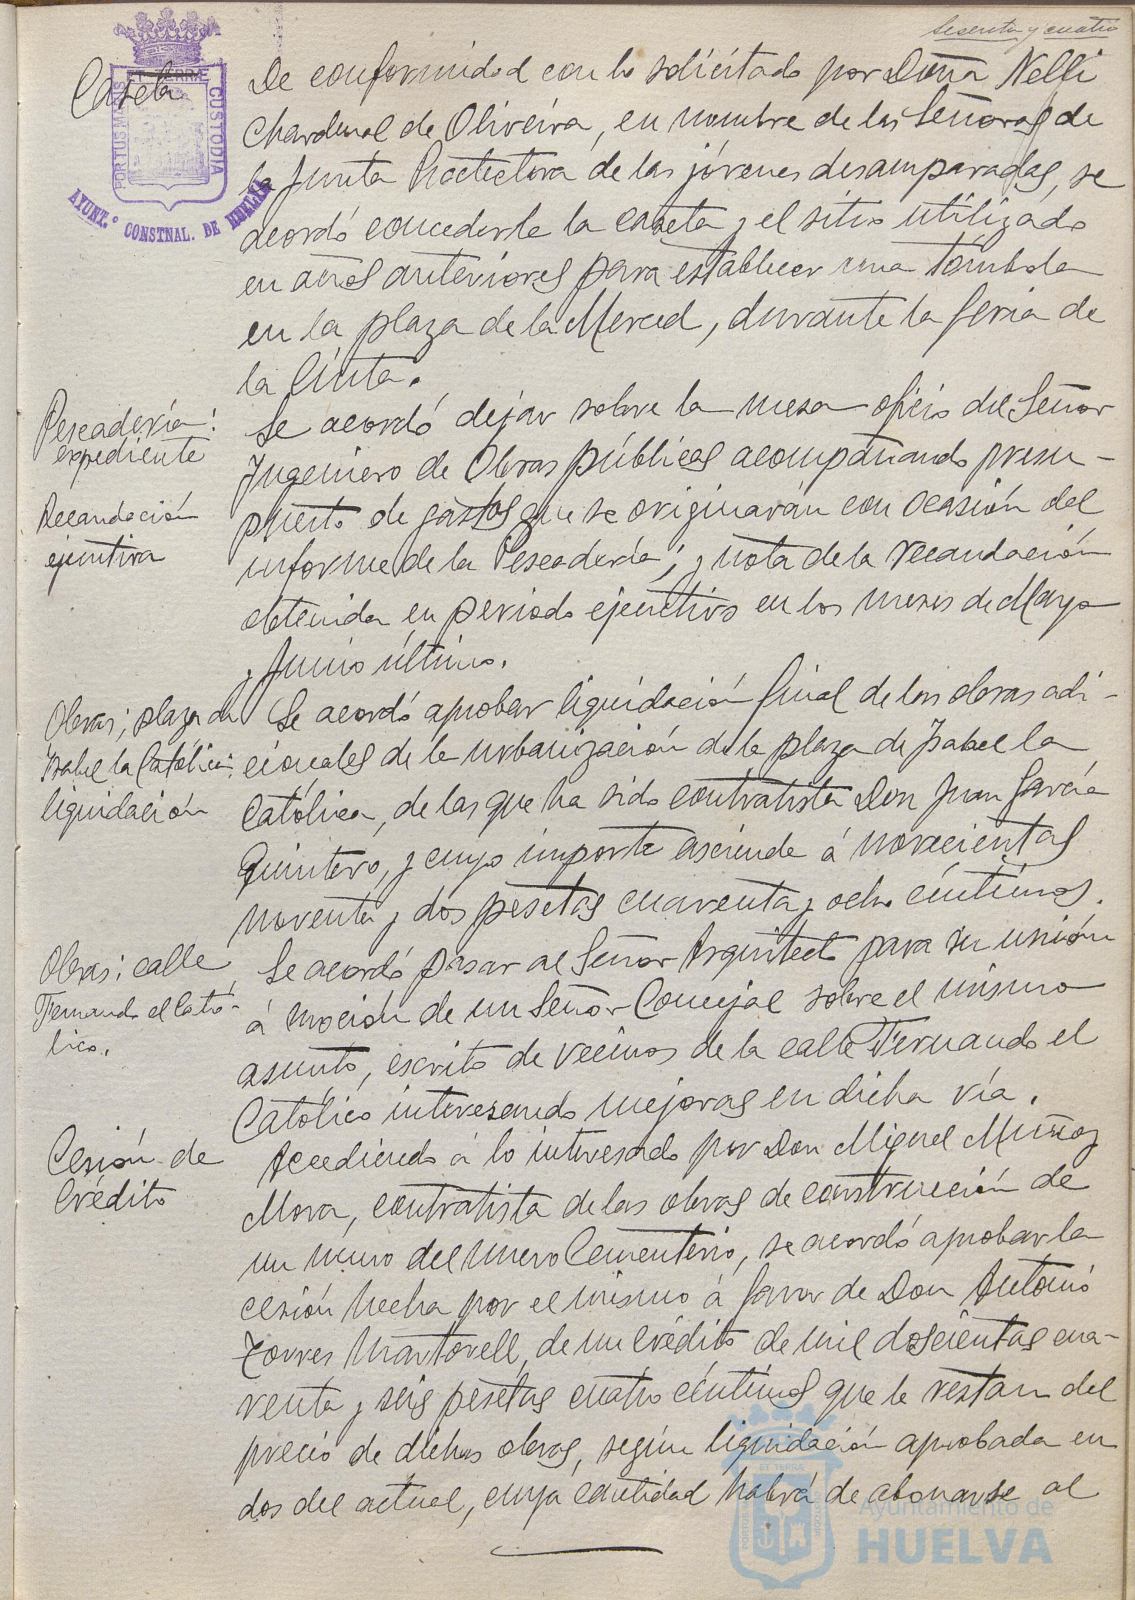 Sesenta y cuatro
Caseta
De conformidad con lo solicitado por Doña Nelli
Chardenal de Oliveira, en nombre de las Señoras de
la Junta Protectora de las jóvenes desamparadas, se
acordó concederle la caseta y el sitio utilizado
en años anteriores para establecer una tómbola
en la plaza de la Merced, durante la feria de
la Cinta.
Pescadería:
expediente
Recaudación
ejecutiva
Se acordó dejar sobre la mesa oficio del Señor
Ingeniero de Obras públicas acompañando presu-
puesto de gastos que se originarán con ocasión del
informe de la Pescadería; y nota de la recaudación
obtenida en periodo ejecutivo en los meses de Mayo
y Junio último.
Obras; plaza de
Isabel la Católica:
liquidación
Se acordó aprobar liquidación final de las obras adi-
cionales de la urbanización de la plaza de Isabel la
Católica, de las que ha sido contratista Don Juan García
Quintero, y cuyo importe asciende á novecientas
noventa y dos pesetas cuarenta y ocho céntimos.
Obras; calle
Fernando el Cató-
lico.
Se acordó pasar al Señor Arquitecto para su unión
á moción de un Señor Concejal sobre el mismo
asunto, escrito de vecinos de la calle Fernando el
Católico interesando mejoras en dicha vía.
Cesión de
Crédito
Accediendo á lo interesado por Don Miguel Muñoz
Mora, contratista de las obras de construcción de
un muro del nuevo Cementerio, se acordó aprobar la
cesión hecha por el mismo á favor de Don Antonio
Torres Martorell, de un crédito de mil doscientas cua-
renta y seis pesetas cuatro céntimos que le restan del
precio de dichas obras, según liquidación aprobada en
dos del actual, cuya cantidad habrá de abonarse al
PORTUS MARIS
ET TERRAE
CUSTODIA
AYUNT.º CONSTNAL. DE HUELVA
Ayuntamiento de
HUELVA